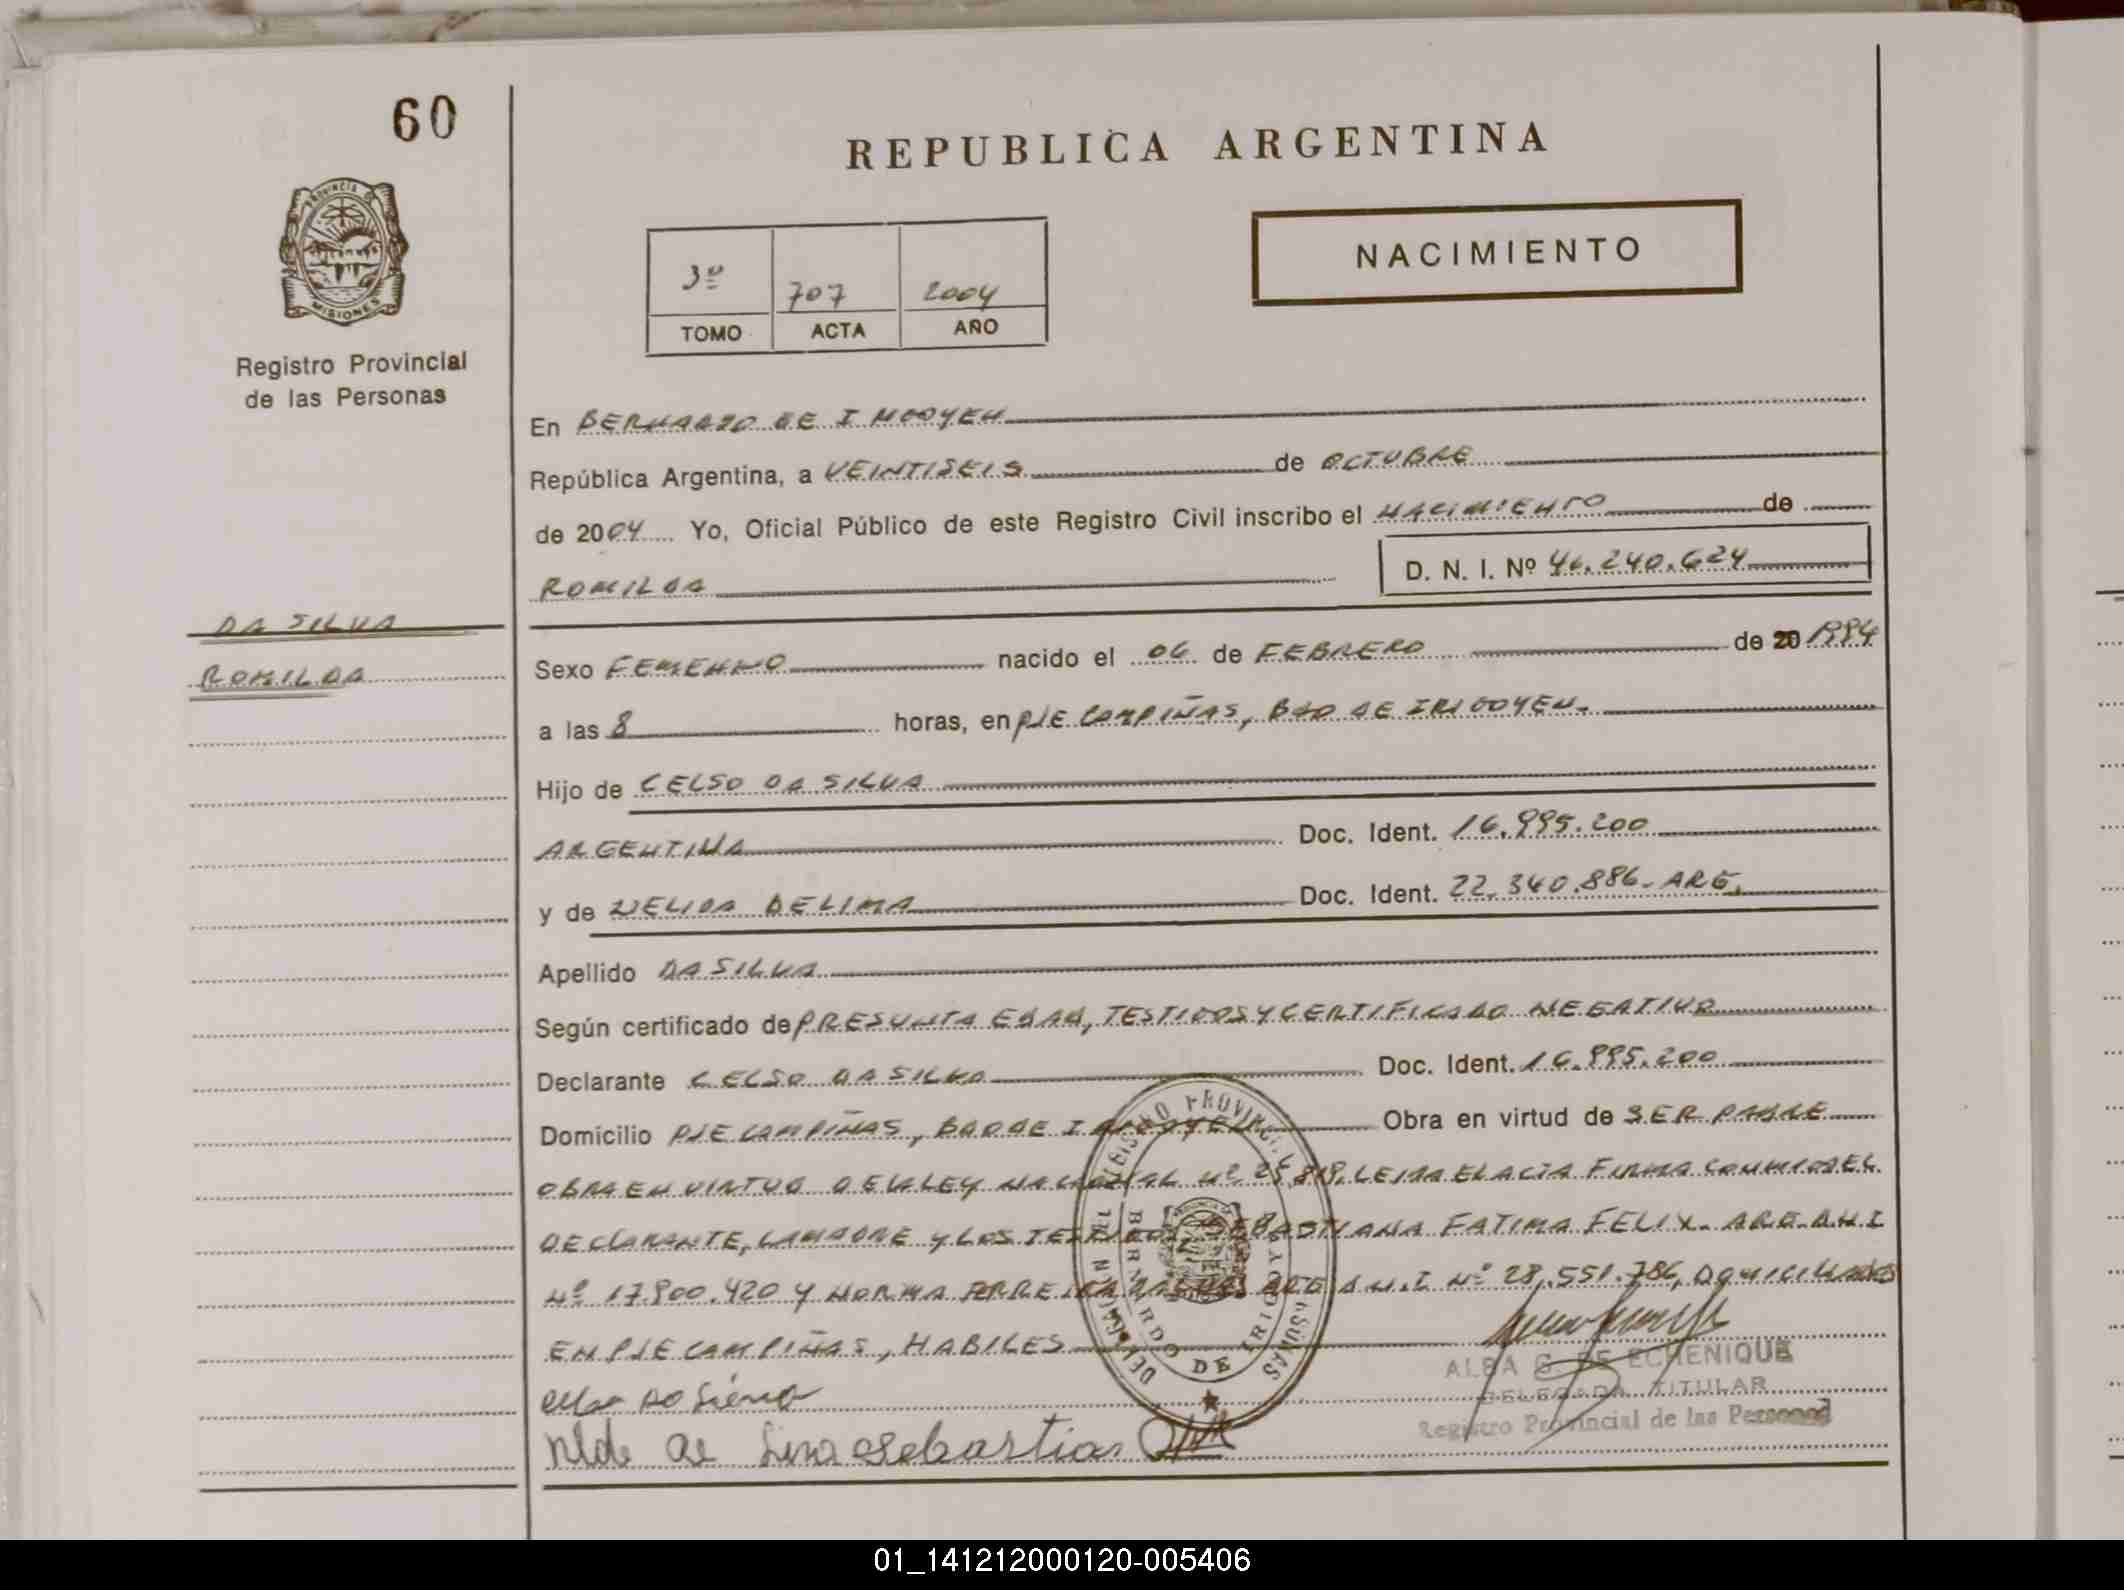 60
REPUBLICA ARGENTINA
PROVINCIA DE
MISIONES
Registro Provincial
de las Personas
NACIMIENTO
3º 707 2004
TOMO ACTA AÑO
En BERNARDO DE IRIGOYEN
República Argentina, a VEINTISEIS de OCTUBRE
de 2004 Yo, Oficial Público de este Registro Civil inscribo el NACIMIENTO de
ROMILDA D. N. I. Nº 46.240.624
DA SILVA
ROMILDA
Sexo FEMENINO nacido el 06 de FEBRERO de 20 1994
a las 8 horas, en PJE CAMPIÑAS, BDO DE IRIGOYEN.
Hijo de CELSO DA SILVA
ARGENTINA Doc. Ident. 16.995.200
y de NELIDA DE LIMA Doc. Ident. 22.340.886. ARG.
Apellido DA SILVA
Según certificado de PRESUNTA EDAD, TESTIGOS Y CERTIFICADO NEGATIVO
Declarante CELSO DA SILVA Doc. Ident. 16.995.200
Domicilio PJE CAMPIÑAS, BDO DE IRIGOYEN Obra en virtud de SER PADRE
OBRA EN VIRTUD DE LA LEY NACIONAL Nº 25.819. LEIDA EL ACTA FIRMA CONMIGO EL
DECLARANTE, LA MADRE Y LOS TESTIGOS SEBASTIANA FATIMA FELIX. ARG. D.N.I
Nº 17.900.420 Y NORMA ARG D.N.I Nº 28.551.786, DOMICILIADOS
EN PJE CAMPIÑAS, HABILES
ALBA G. DE ECHENIQUE
DELEGADA TITULAR
Registro Provincial de las Personas
DELEGACION DEL REGISTRO PROVINCIAL PERSONAS
BERNARDO DE IRIGOYEN
de Lima Sebastian
01_141212000120-005406